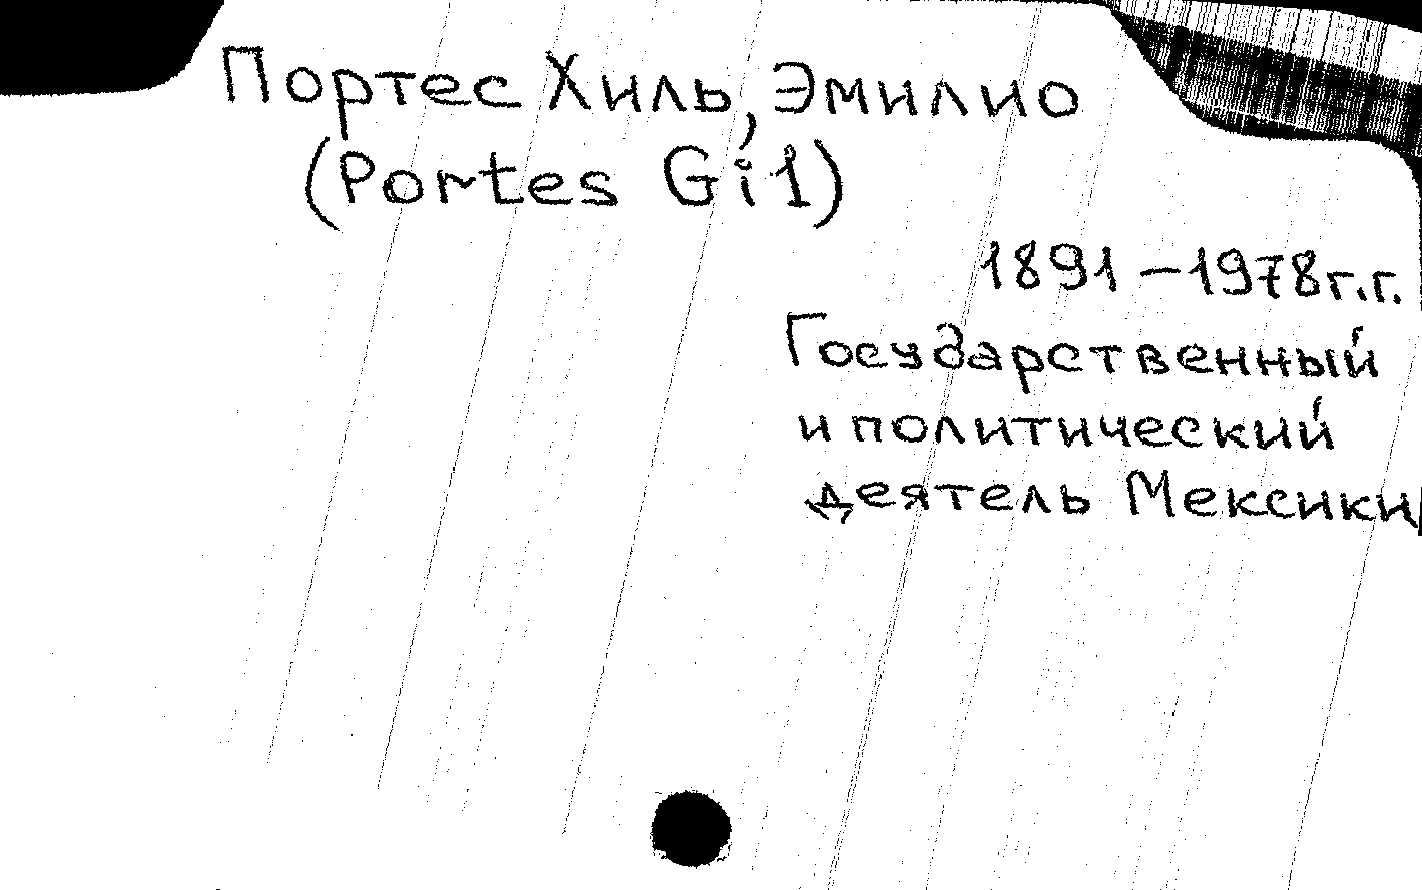 Портес Хиль, Эмилио
(Portes Gil)
1891 – 1978 г.г.
Государственный
и политический
деятель Мексики